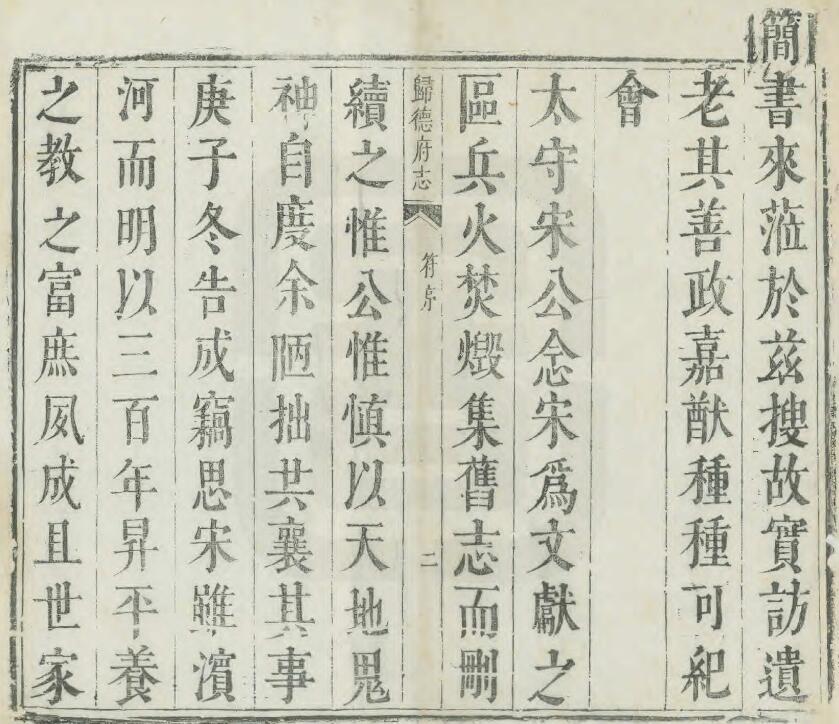 簡書來蒞於茲搜故實訪遺
老其善政嘉猷種種可紀
會
太守宋公念宋爲文獻之
區兵火焚燬集舊志而刪
歸德府志
符序
二
續之惟公惟慎以天地鬼
神自度余陋拙共襄其事
庚子冬告成竊思宋雖濱
河而明以三百年昇平養
之教之富庶夙成且世家